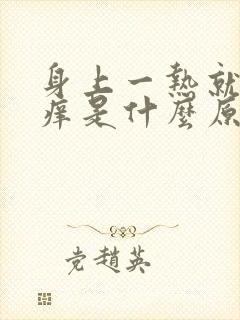 身上一热就
痒是什麼原
党趙英